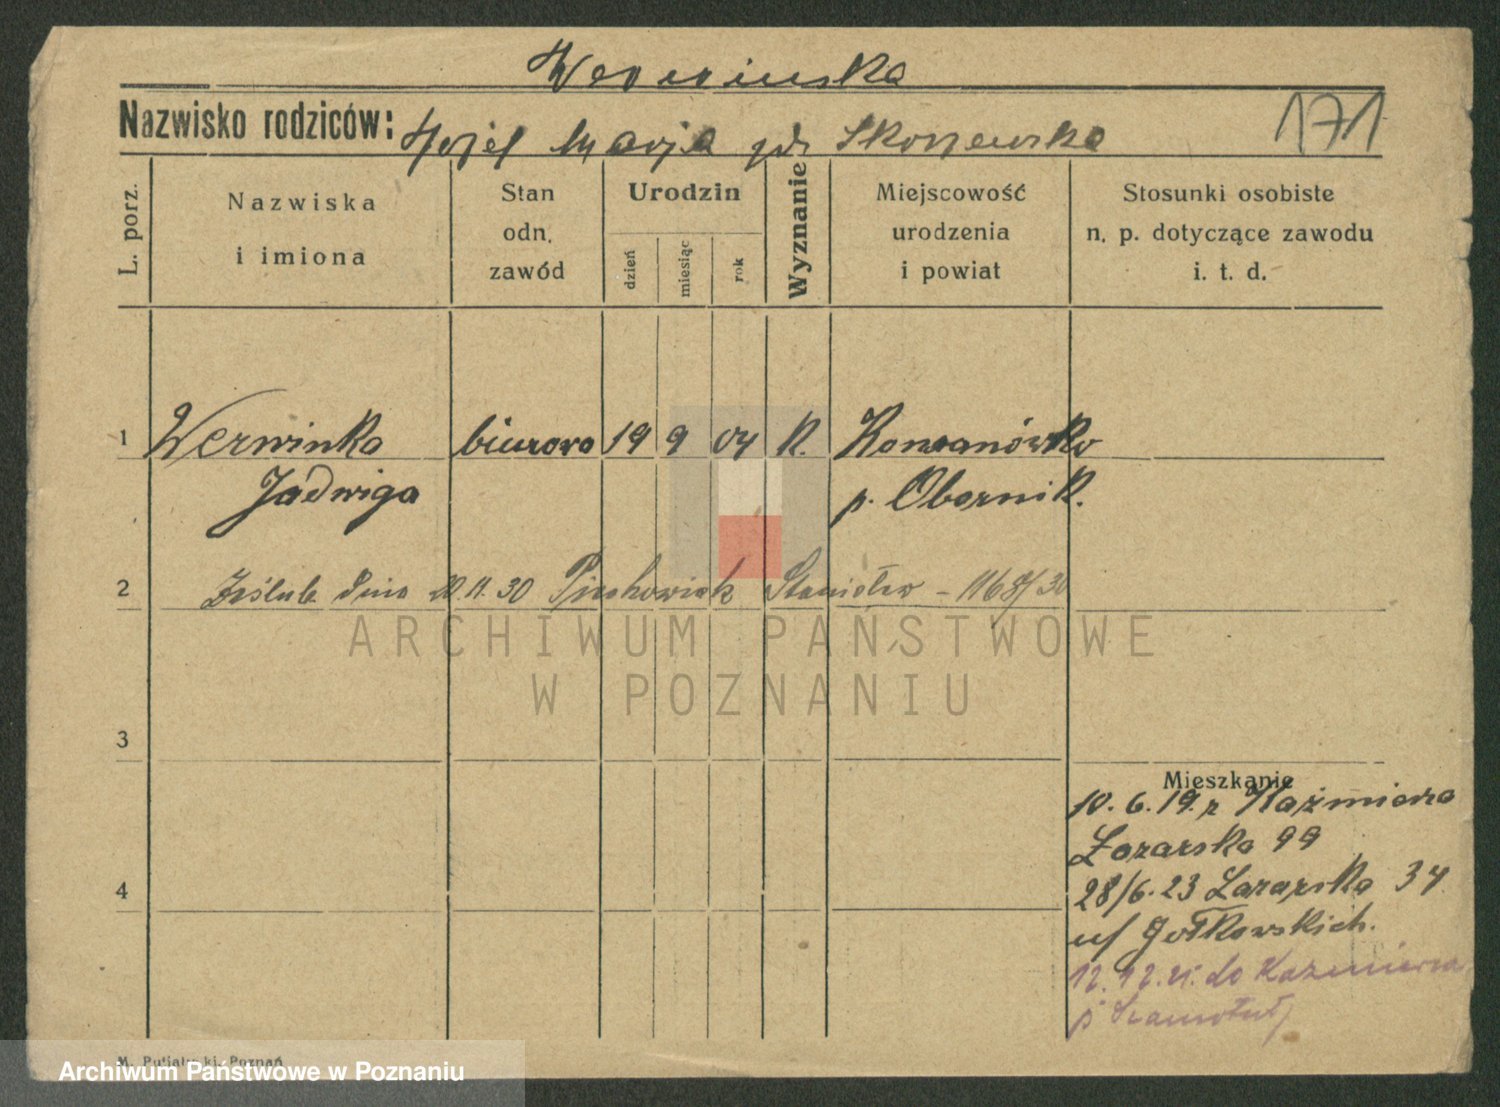 171
Nazwisko rodziców: Józef Marja
L. porz.
Nazwiska i imiona
Stan odn. zawód
Urodzin
dzień
miesiąc
rok
Wyznanie
Miejscowość urodzenia i powiat
Stosunki osobiste n. p. dotyczące zawodu i. t. d.
1 Werwinka biurowa 19 9 04 K.
Jadwiga p. Obornik.
2 dnia 20.11.30 Piechowiak Stanisław - 1168/30
ARCHIWUM PAŃSTWOWE
W POZNANIU
3
Mieszkanie
10. 6. 19. z Kaźmierza
Łazarska 99
4
28/6.23 Łazarska 34
u/ Gołkowskich.
12.12. do Kazmierza
p Szamotuły
M. Putiatycki, Poznań
Archiwum Państwowe w Poznaniu